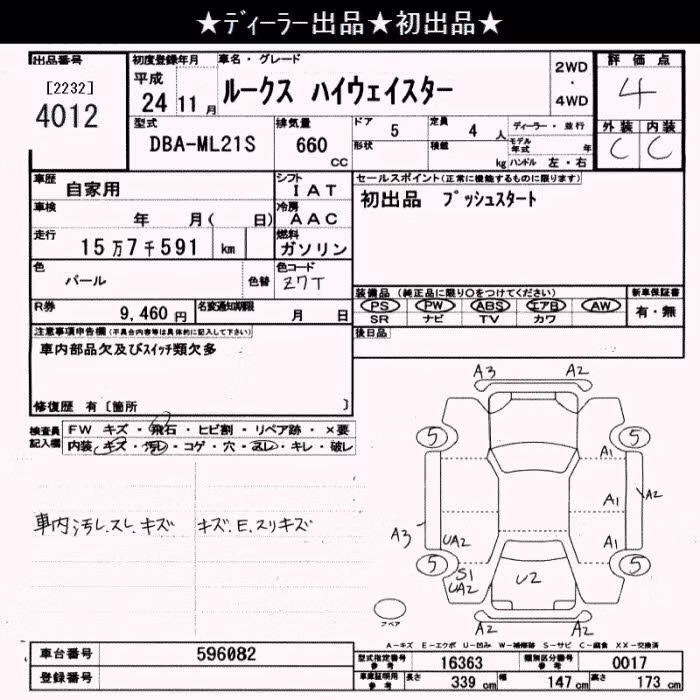 ★ディーラー出品★初出品★
出品番号
[2232]
4012
初度登録年月
平成
24 11月
車名・グレード
ルークス ハイウェイスター
2WD
・
4WD
評価点
4
外装 内装
C C
型式
DBA-ML21S
排気量
660
CC
ドア 5 定員 4 人
形状 積載 kg
ディーラー・並行
モデル年式 年
ハンドル 左・右
車歴
自家用
シフト
IAT
車検
年 月( 日)
冷房
AAC
走行
15万7千591 km
燃料
ガソリン
色
パール
色替
色コード
Z7T
R券
9,460円
名変通知期限
月 日
セールスポイント(正常に機能するものに限ります)
初出品 プッシュスタート
装備品(純正品に限り○をつけてください)
PS PW ABS エアB AW
SR ナビ TV カワ
新車保証書
有・無
後日品
注意事項申告欄(不具合内容等は具体的に記入して下さい)
車内部品欠及びスイッチ類欠多
修復歴 有〔箇所 〕
検査員
記入欄
FW キズ・飛石・ヒビ割・リペア跡・×要
内装・キズ・汚レ・コゲ・穴・スレ・キレ・破レ
車内汚レ.スレ.キズ
キズ.E.スリキズ
A3 A2
5 5
A1
A1 A2
A3 UA2 A1
5 S1 5
UA2 U2
A2 A2
スペア
A-キズ E-エクボ U-凹み W-補修跡 S-サビ C-腐食 XX-交換済
車台番号
596082
登録番号
型式指定番号
参考
16363
類別区分番号
参考
0017
車庫証明用
参考
長さ 339 cm 幅 147 cm 高さ 173 cm